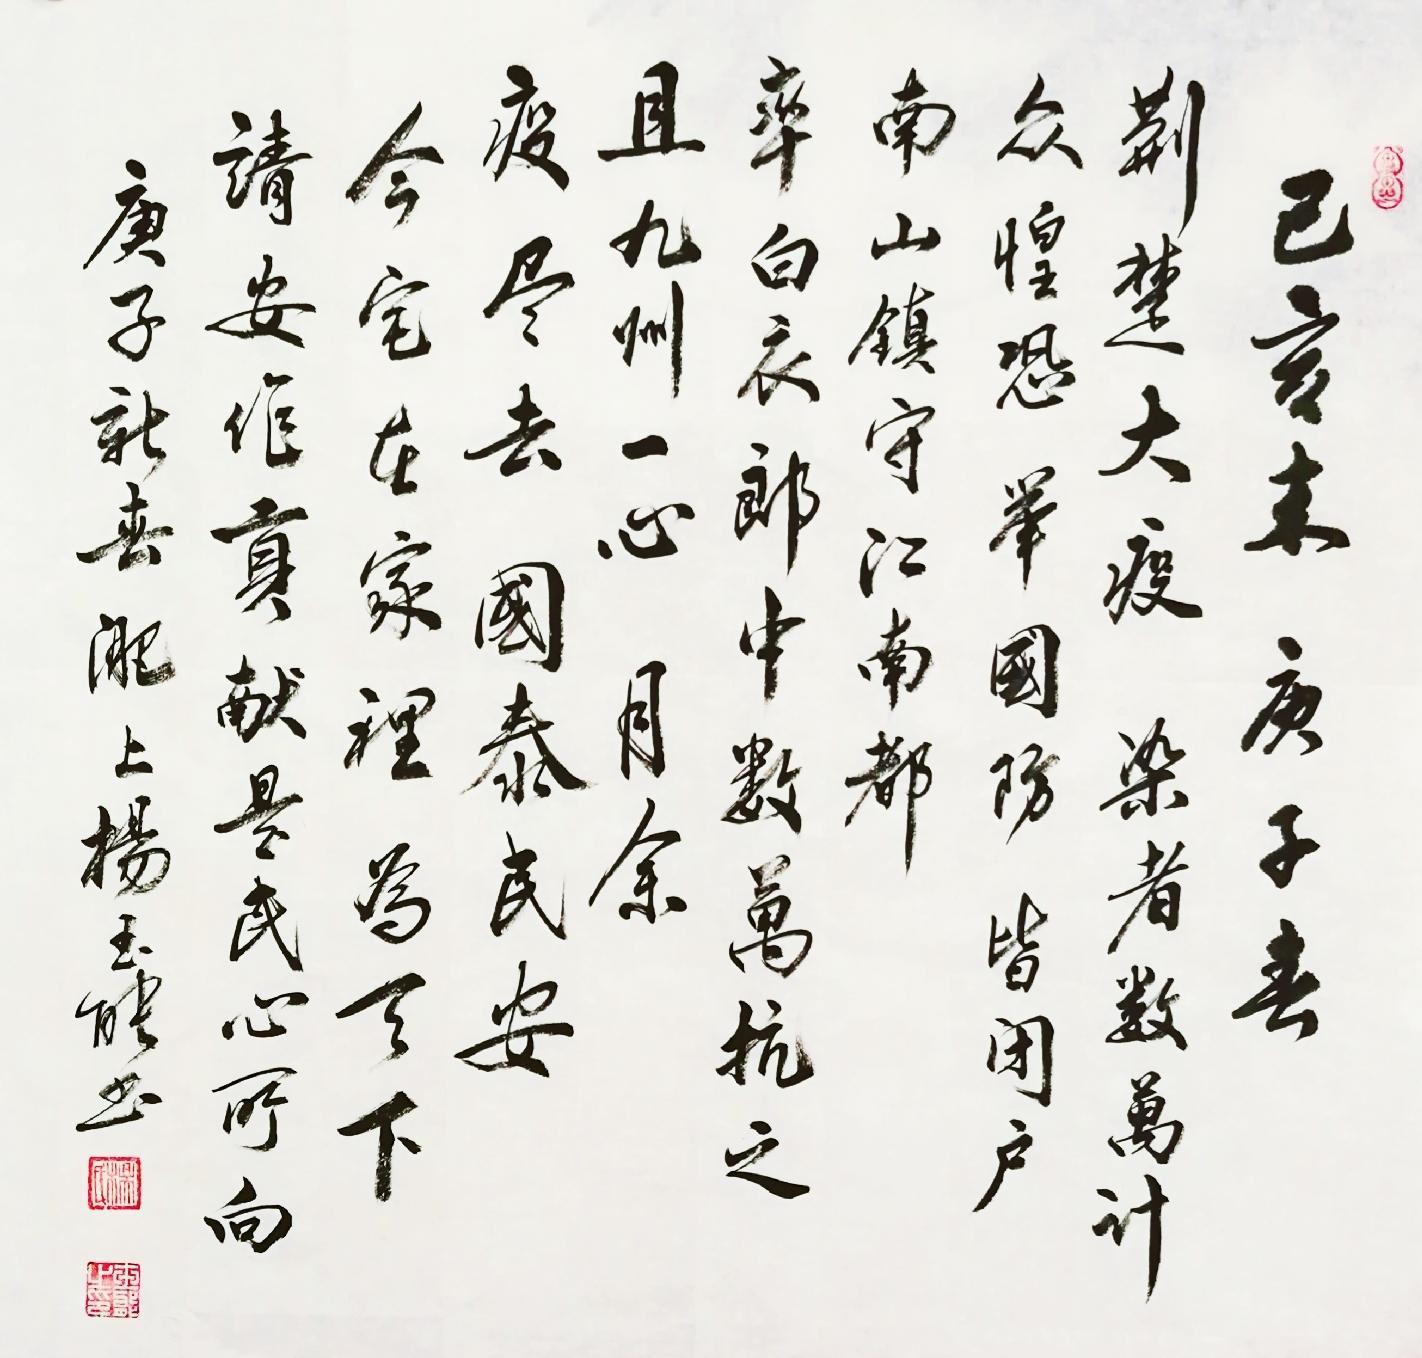 已亥末 庚子春
荆楚大疫 染者数萬计
众惶恐 举國防 皆闭户
南山鎮守江南都
率白衣郎中数萬抗之
且九州一心 月余
疫尽去 國泰民安
今宅在家裡 為天下
請安作貢献是民心所向
庚子新春 淝上楊玉能书